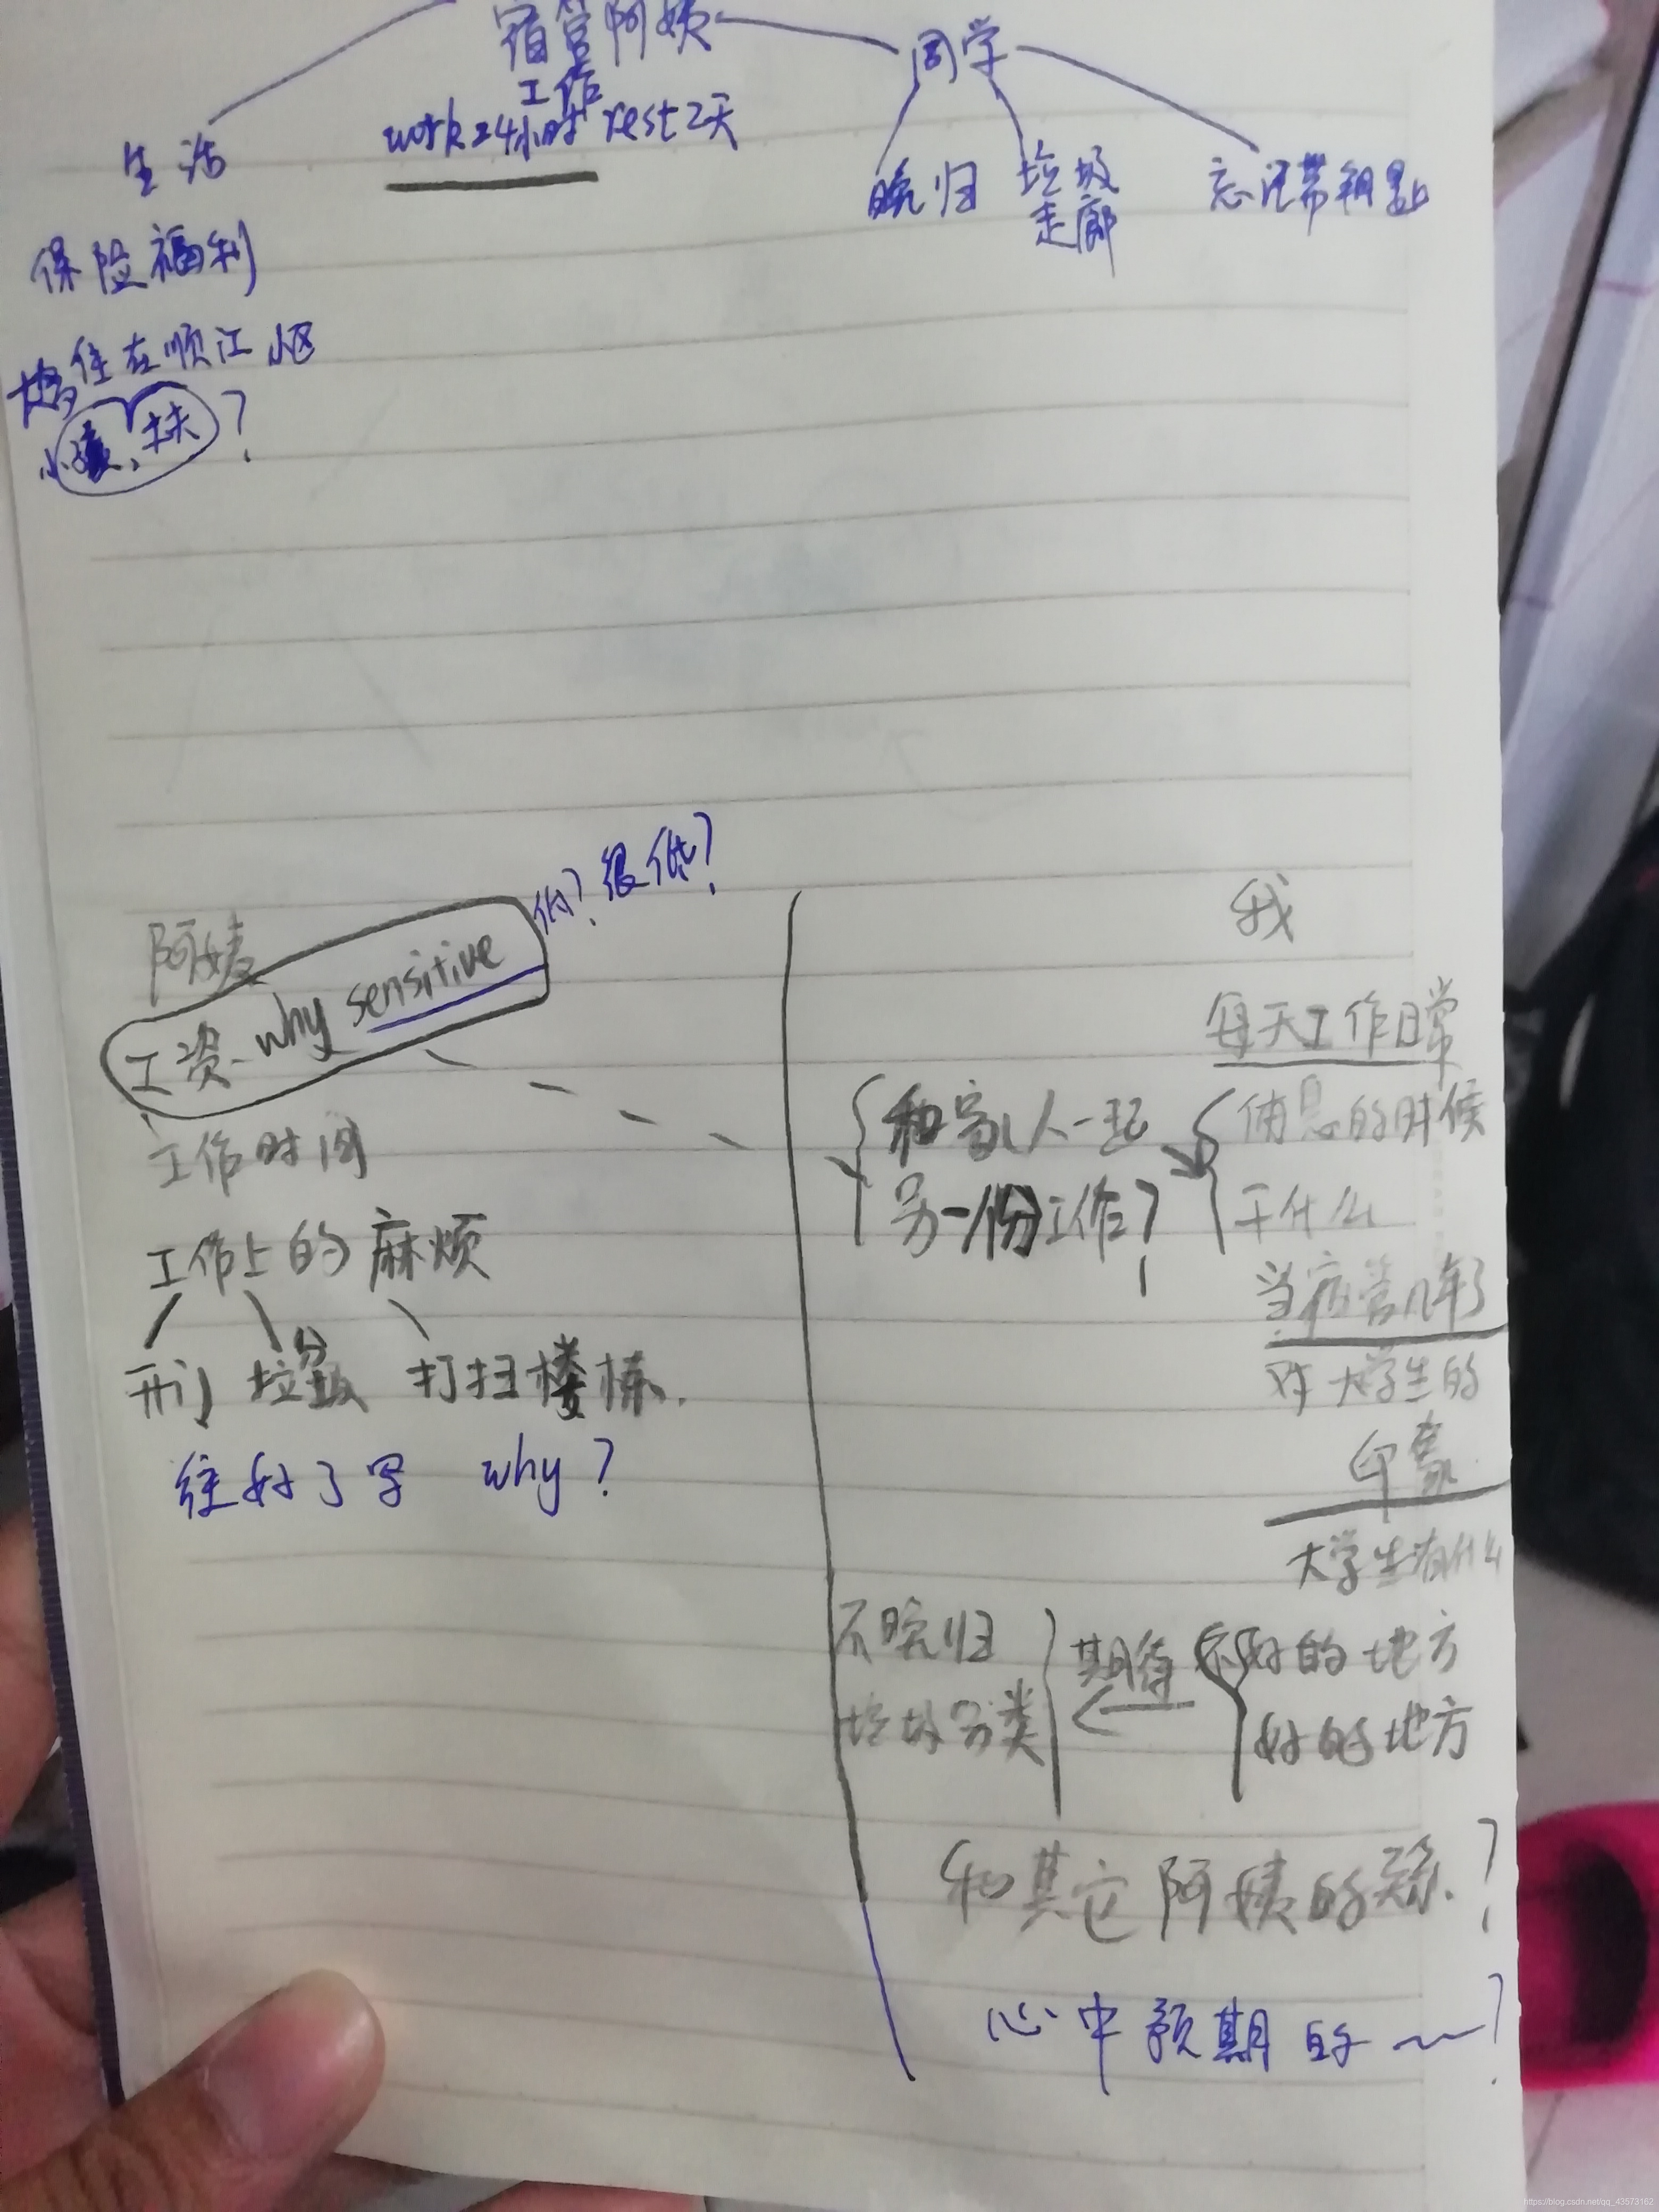 宿管阿姨
工作
work 24小时 rest 2天
同学
生活
晚归
垃圾
走廊
忘记带钥匙
保险福利
住在顺江小区
小孩,丈夫?
低?很低?
阿姨
工资 why sensitive
工作时间
工作上的麻烦
开门 垃圾 分 打扫楼栋.
往好了写 why?
我
每天工作日常
和家人一起
另一份工作?
休息的时候
干什么
当宿管几年了
对大学生的
印象
大学生有什么
不好的地方
好的地方
期待
不晚归
垃圾分类
和其它阿姨的联系?
心中预期的~?
https://blog.csdn.net/qq_43573162